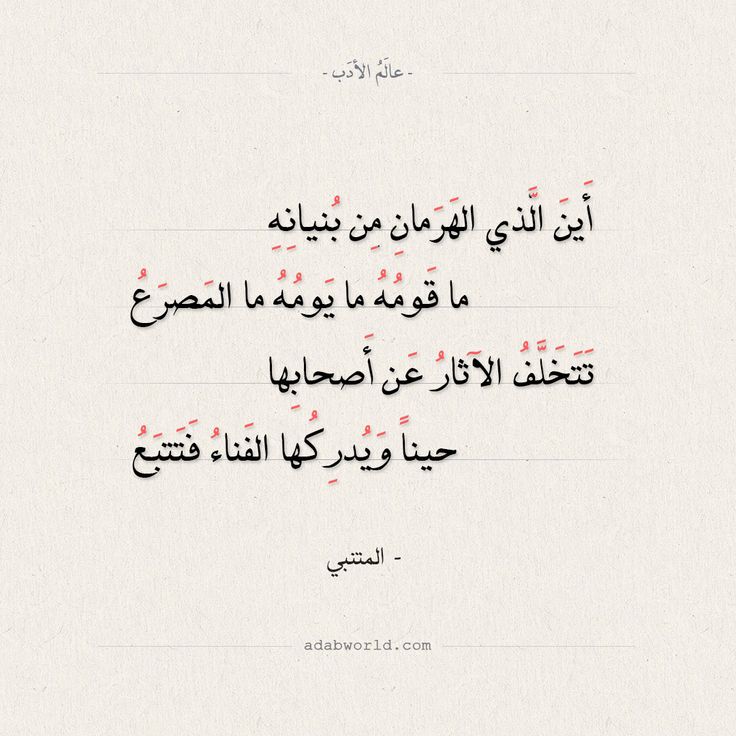 - عالَمُ الأدَب -
أَينَ الَّذي الهَرَمانِ مِن بُنيانِهِ
ما قَومُهُ ما يَومُهُ ما المَصرَعُ
تَتَخَلَّفُ الآثارُ عَن أَصحابِها
حيناً وَيُدرِكُها الفَناءُ فَتَتبَعُ
- المتنبي
adabworld.com